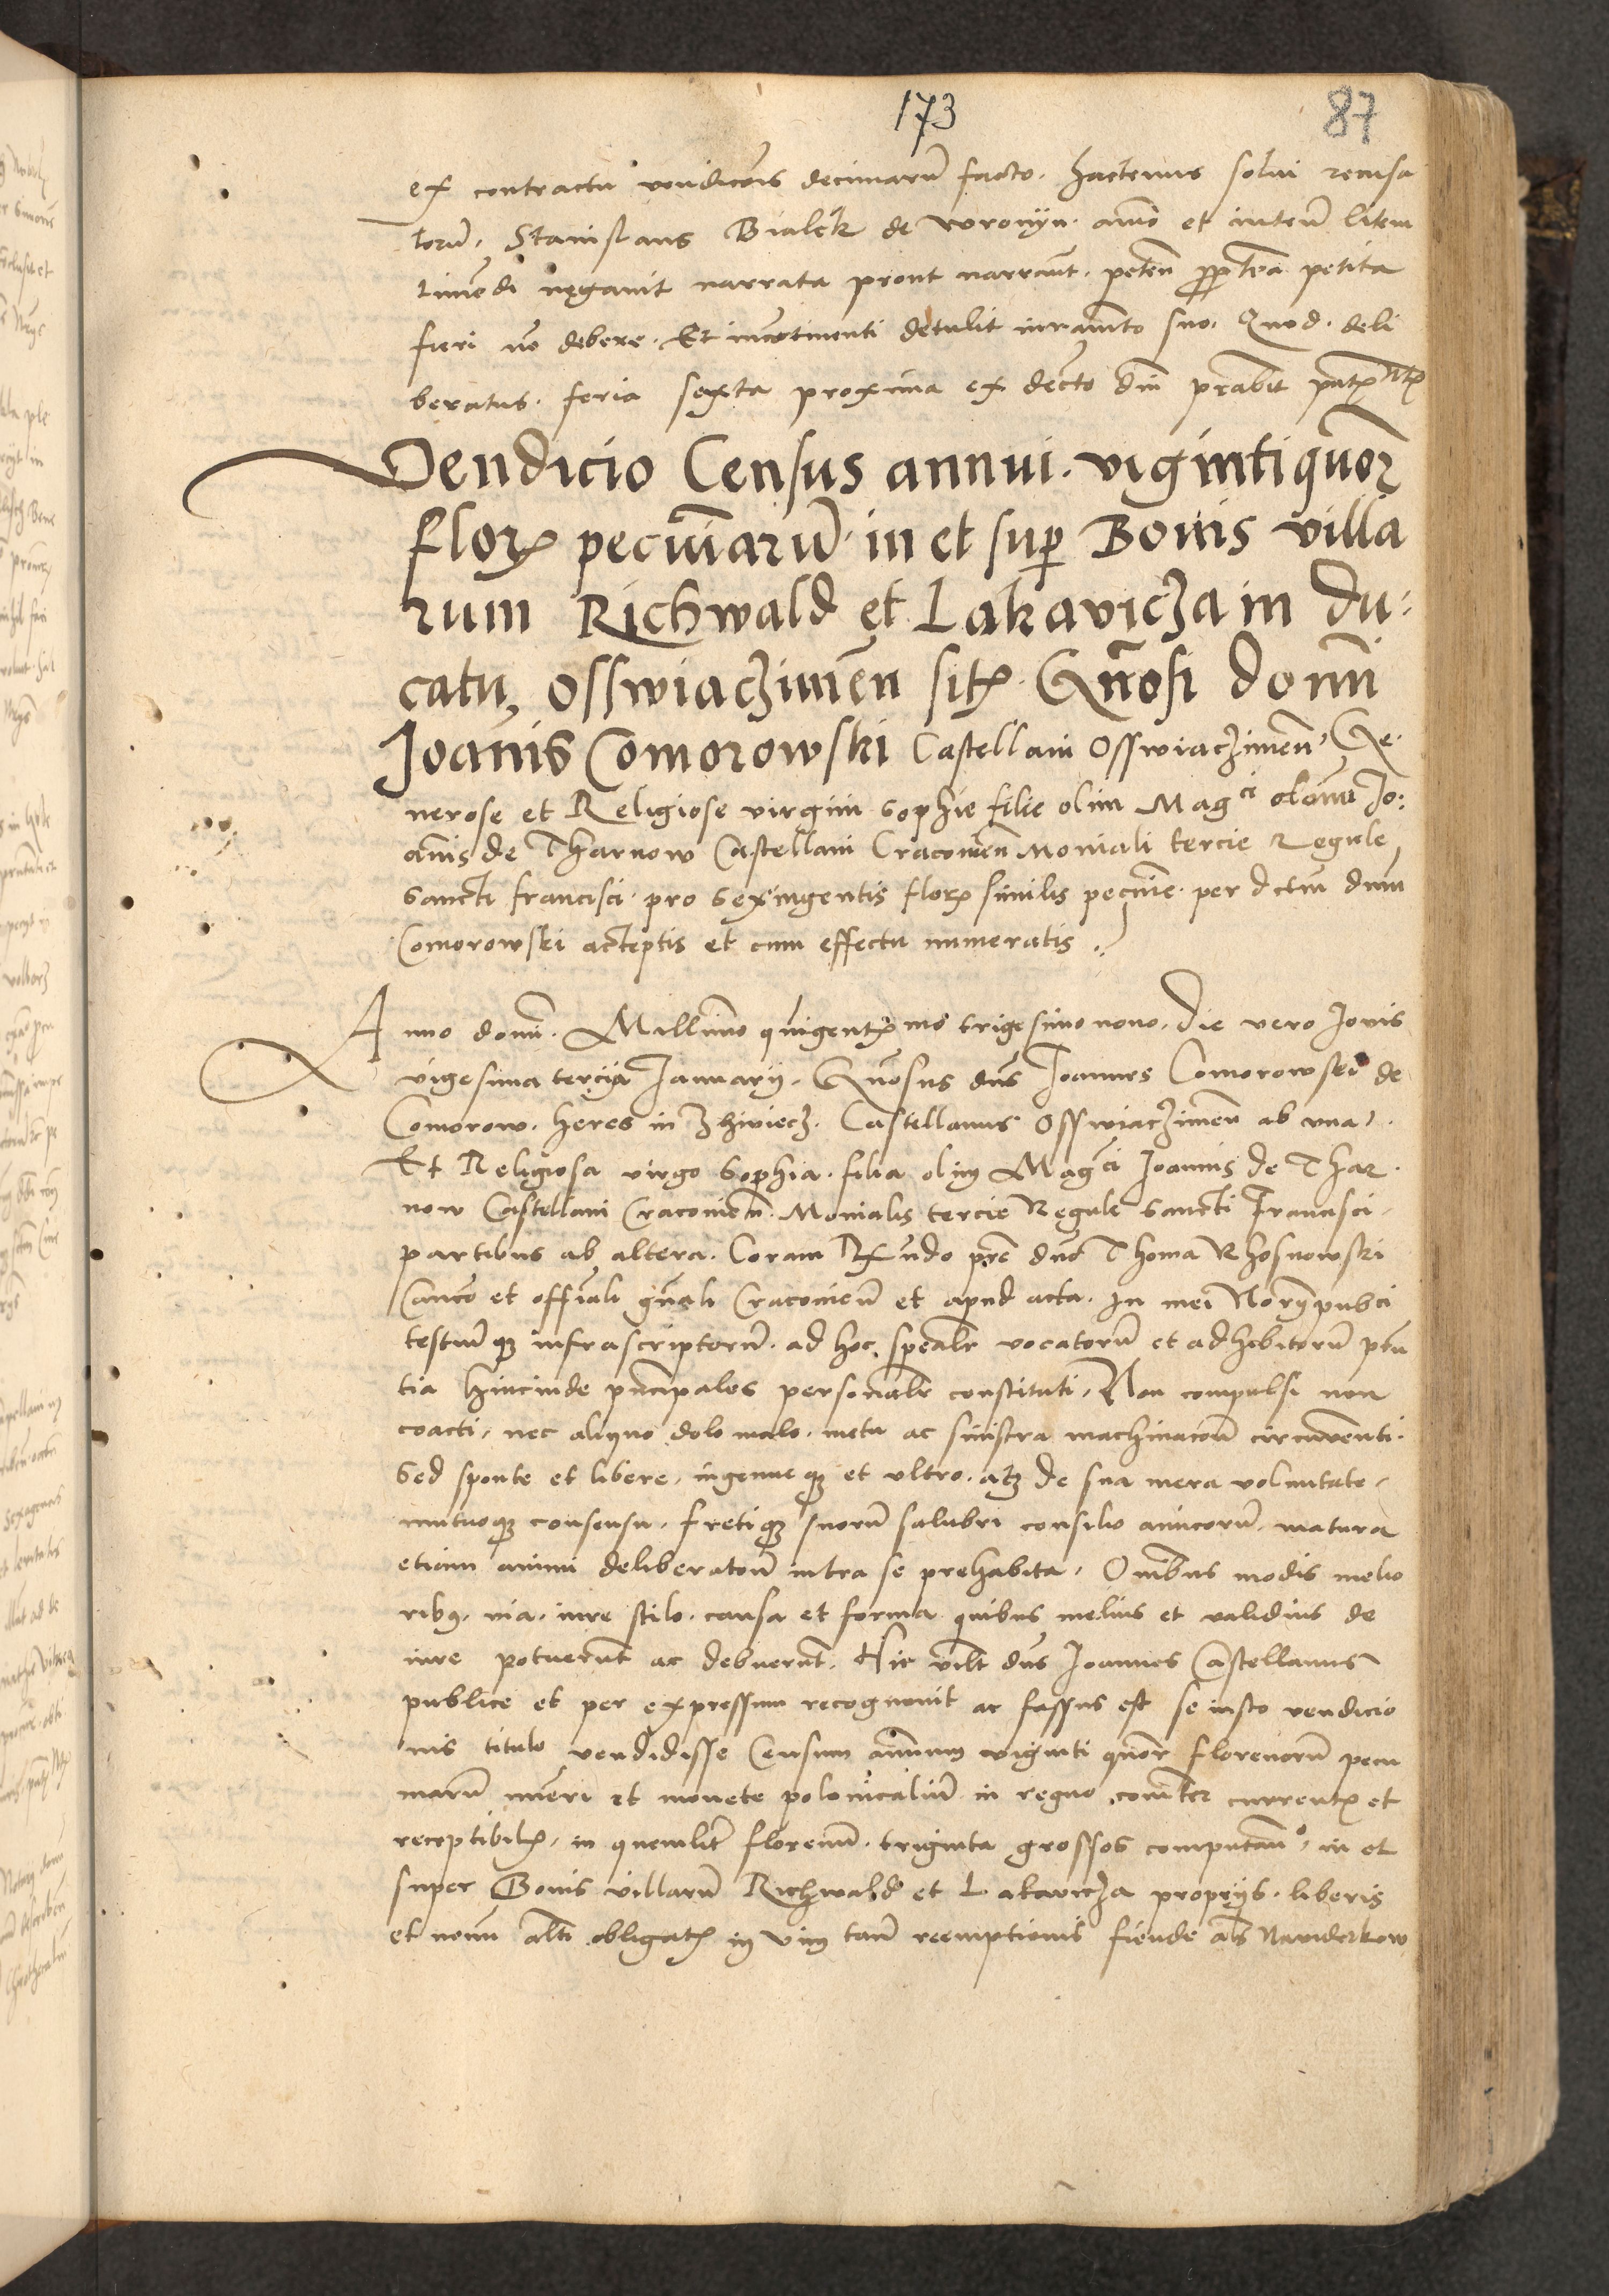 173
87
ex contractu vendicõis decimarũ facto. hactenus solui recusa
torũ. Stanislaus Bialek de Wronyn. aĩo et intẽtũ litem
negavit narrata prout narrant̃. petẽñ petita
fieri nõ debere. Et incõtinenti detulit iuramẽto suo. Quod. deli
beratus. feria sexta proxima ex decto dñi prẽbit
Vendicio Census annui. viginti quor̃
floꝝ pecuniarũ. in et sup̱ Bonis villa
rum Richwald et Lakavicza in du:
catu, Osswiaczimeñ sitꝝ. Gñosi domi
Joañis Comorowski Castellani Osswiaczimeñ, Ge.
nerose et Religiose virgini Sophie filie olim Magci Jo:
annis de Tharnow Castellani Cracovieñ Moniali tercie Regule
Sancti francisci. pro Sexingentis floꝝ similis pecunie. per dctũ dnm
Comorowski acceptis et cum effectu numeratis.
Anno domi. Millimo quigentꝝmo trigesimo nono. Die vero Jovis
vigesima tercia Januarij. Gñosus dñs Joannes Comorowski de
Comorow. heres in Zhiviecz. Castellanus Osswiaczimeñ ab una.
Et Religiosa virgo Sophia. filia olim Magci Joannis de Thar
now Castellani Cracovieñ. Monialis tercie Regule Sancti Francisci.
partibus ab altera. Coram Rẽundo pr̃e dno Thoma Rhosnowski
Canco et officiali gñali Cracovieñ et apud acta. In mei Norij pubci
testiũqꝫ infrascriptorũ. ad hoc spẽalr̃ vocatorũ et adhibitorũ pñ
tia hincinde pñcipales personalr̃ constituti. Non compulsi non
coacti. nec aliquo dolo malo. metu ac sinistra machinacõe circũventi.
Sed sponte et libere. ingenueqꝫ et ultro. atqꝫ de sua mera voluntate.
mutuoqꝫ consensu. fretiqꝫ suorũ salubri consilio amicorũ. matura
etiam animi deliberatiõe intra se prehabita. Omibus modis melio
ribꝰ. via. iure stilo. causa et forma quibus melius et validius de
iure potuerunt ac debuerunt. Hic vidlt dñs Joannes Castellanus
publice et per expressum recognovit ac fassus est se iusto vendicio
nis titulo vendidisse Censum annuum viginti quor̃ florenorũ pecu
niarũ nũeri et monete polonicaliũ in regno cõmiter currentꝝ et
receptibiliꝝ. in quemlibt̃ florenũ. triginta grossos computañdo. in et
super Bonis villarũ Richwald et Lakavicza proprijs. liberis
et nemini alti obligatꝝ in vim tam̃ reemptionis fiende als Naviderkow